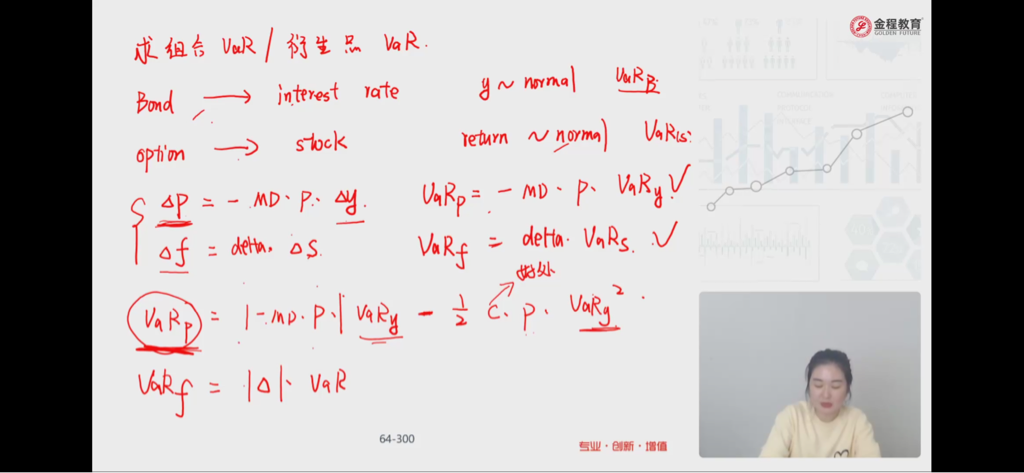 金程教育
GOLDEN FUTURE
求组合 VaR / 衍生品 VaR.
Bond → interest rate y ~ normal VaR_B.
option → stock return ~ normal VaR_s.
ΔP = - MD · P · Δy. VaR_P = - MD · P · VaR_y √
Δf = delta · ΔS. VaR_f = delta · VaR_s. √
好处
VaR_P = |-MD · P ·| VaR_y - 1/2 C · P · VaR_y² ·
VaR_f = |Δ| · VaR
64-300
专业·创新·增值